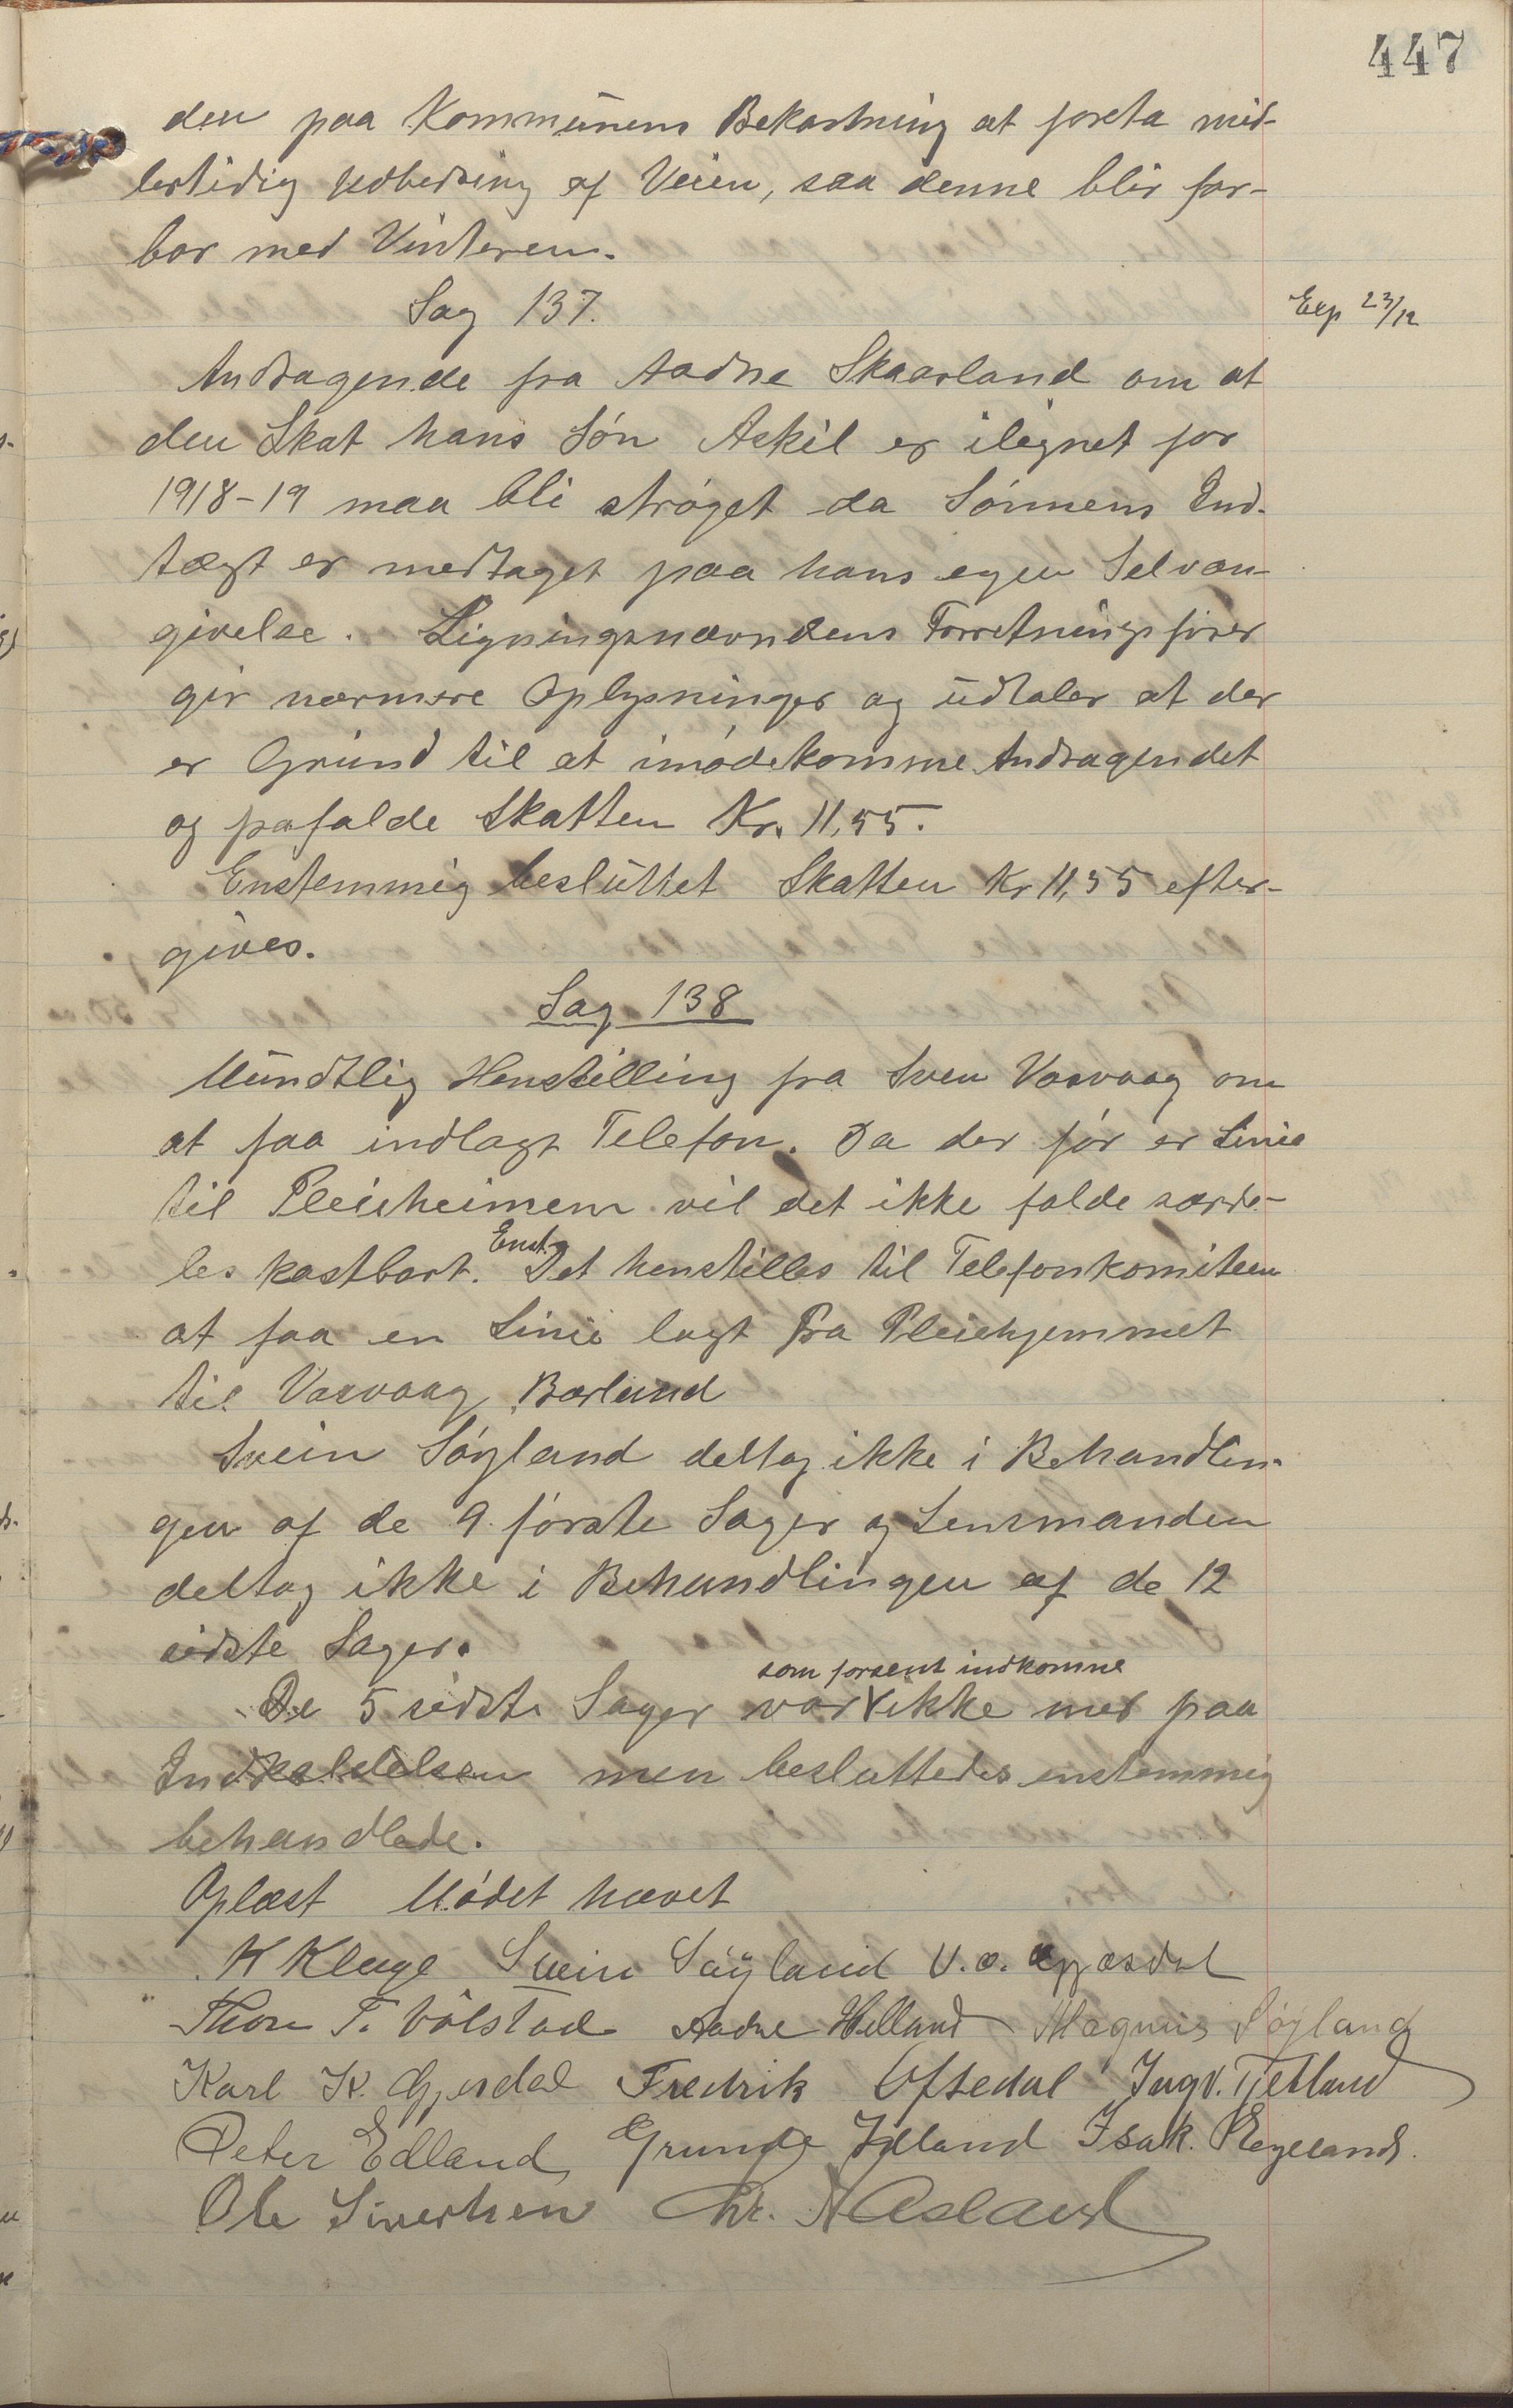 447
den paa Kommunens Bekostning at foreta mid-
lertidig Udbedring af Veien, saa denne blir far-
bar med Vinteren.
Sag 137.
Exp 23/12
Andragende fra Aadne Skaarland om at
den Skat hans Søn Askil er ilignet for
1918-19 maa bli strøget da Sønnens Ind-
tægt er medtaget paa hans egen Selvan-
givelse. Ligningsnævndens Forretningsfører
gir nærmere Oplysninger og udtaler at der
er Grund til at imødekomme Andragendet
og frafalde Skatten Kr. 11,55.
Enstemmig besluttet Skatten Kr 11,55 efter-
gives.
Sag 138
Mundtlig Henstilling fra Sven Vasvaag om
at faa indlagt Telefon. Da der før er Linie
til Pleieheimem vil det ikke falde særde-
les kostbart. Enst. Det henstilles til Telefonkomiteen
at faa en Linie lagt fra Pleiehjemmet
til Vasvaag, Barland
Svein Søyland deltog ikke i Behandlin-
gen af de 9 første Sager og Lensmanden
deltog ikke i Behandlingen af de 12
sidste Sager.
som forsent indkomne
De 5 sidste Sager var V ikke med paa
Indkaldelsen men besluttedes enstemmig
behandlede.
Oplæst Mødet hævet
K Kluge Svein Søyland
Thore T. Vølstad Aadne Helland Magnus Søyland
Karl K. Gjesdal Fredrik Oftedal Ingv. Tjetland
Peter Edland Grunde Idland Isak
Ole Sivertsen Chr. A Asland